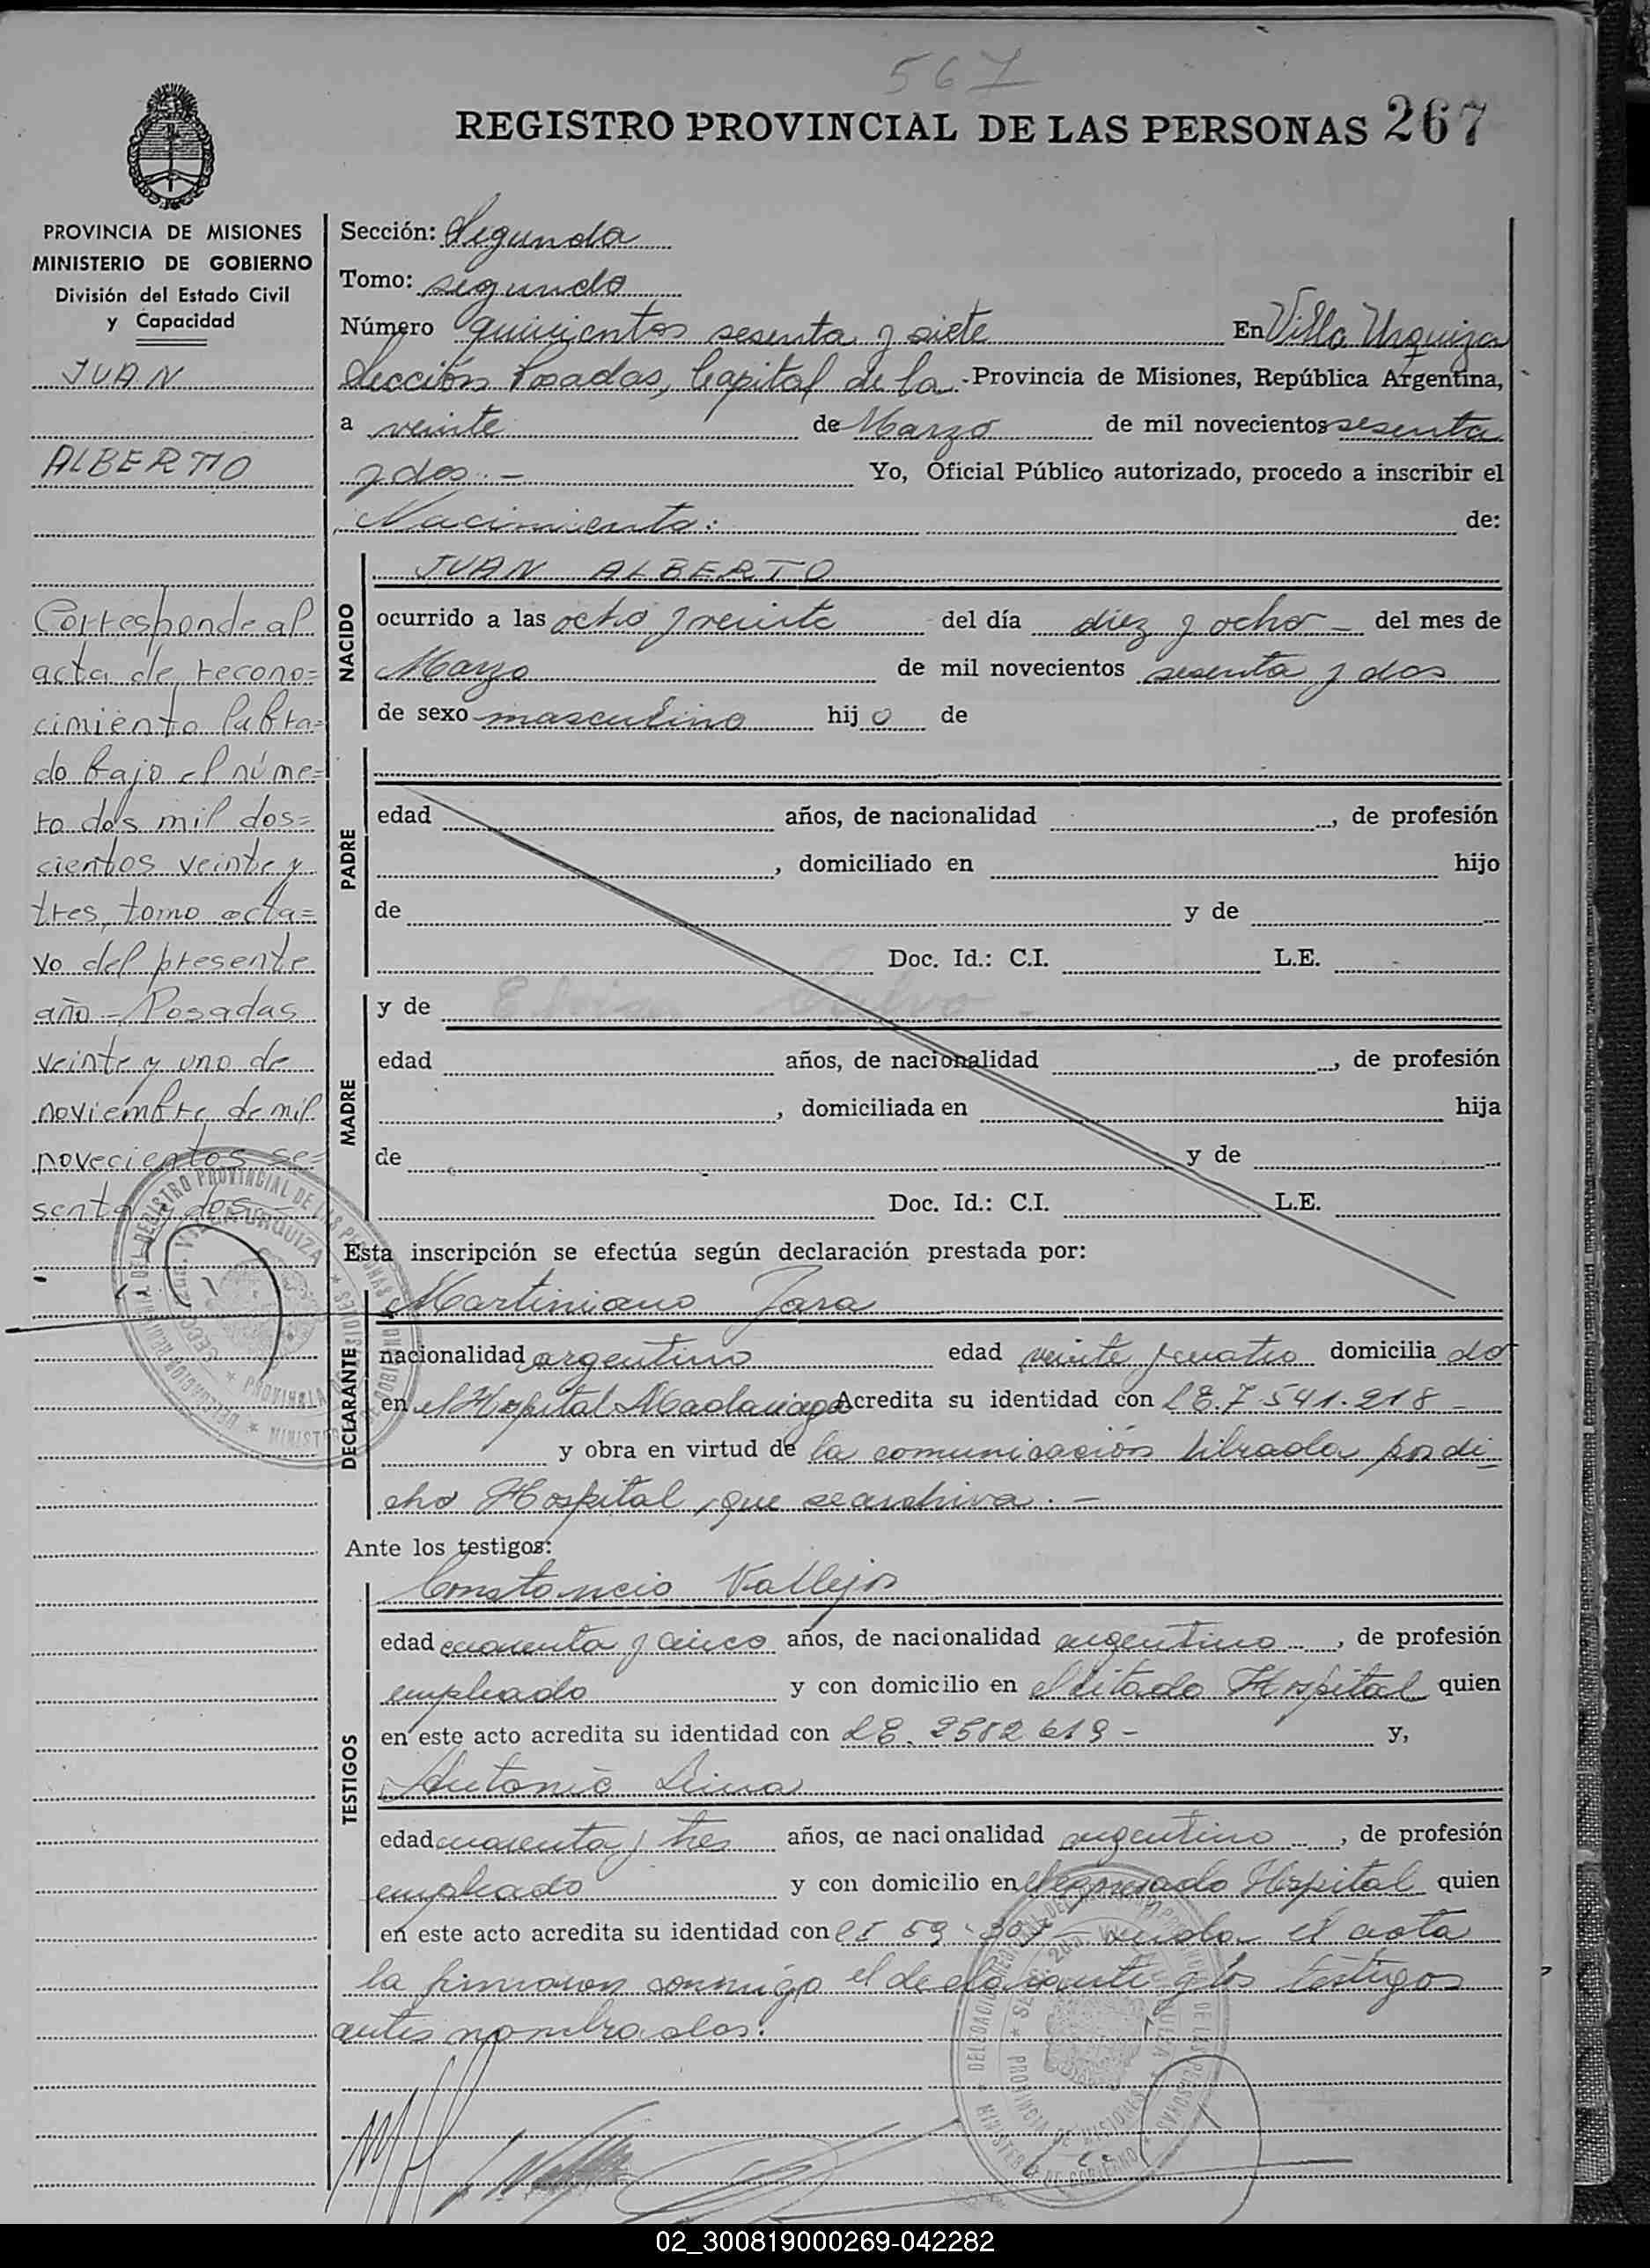 567
REGISTRO PROVINCIAL DE LAS PERSONAS 267
PROVINCIA DE MISIONES
MINISTERIO DE GOBIERNO
División del Estado Civil
y Capacidad
JUAN
ALBERTO
Corresponde al
acta de recono=
cimiento labra=
do bajo el núme=
ro dos mil dos=
cientos veinte y
tres, tomo octa=
vo del presente
año = Posadas
veinte y uno de
noviembre de mil
novecientos se=
senta y dos
Sección: Segunda
Tomo: segundo
Número quinientos sesenta y siete En Villa Urquiza
Sección Posadas, Capital de la Provincia de Misiones, República Argentina,
a veinte de Marzo de mil novecientos sesenta
y dos.- Yo, Oficial Público autorizado, procedo a inscribir el
Nacimiento: de:
NACIDO
JUAN ALBERTO
ocurrido a las ocho y veinte del día diez y ocho - del mes de
Marzo de mil novecientos sesenta y dos
de sexo masculino hijo de
PADRE
edad años, de nacionalidad , de profesión
, domiciliado en hijo
de y de
Doc. Id.: C.I. L.E.
MADRE
y de
edad años, de nacionalidad , de profesión
, domiciliada en hija
de y de
Doc. Id.: C.I. L.E.
Esta inscripción se efectúa según declaración prestada por:
DECLARANTE
Martiniano Jara
nacionalidad argentino edad veinte y cuatro domiciliado
en el Hospital Madariaga Acredita su identidad con L E. 7541.218 -
y obra en virtud de la comunicación librada por di
cho Hospital, que se archiva. -
Ante los testigos:
TESTIGOS
Constancio Vallejos
edad cuarenta y cinco años, de nacionalidad argentino , de profesión
empleado y con domicilio en el citado Hospital quien
en este acto acredita su identidad con L E. 2582 619 - y,
Antonio Lima
edad cuarenta y tres años, de nacionalidad argentino , de profesión
empleado y con domicilio en el expresado Hospital quien
en este acto acredita su identidad con el acta
la firmaron conmigo el declarante y los testigos
antes nombrados.
02_300819000269-042282